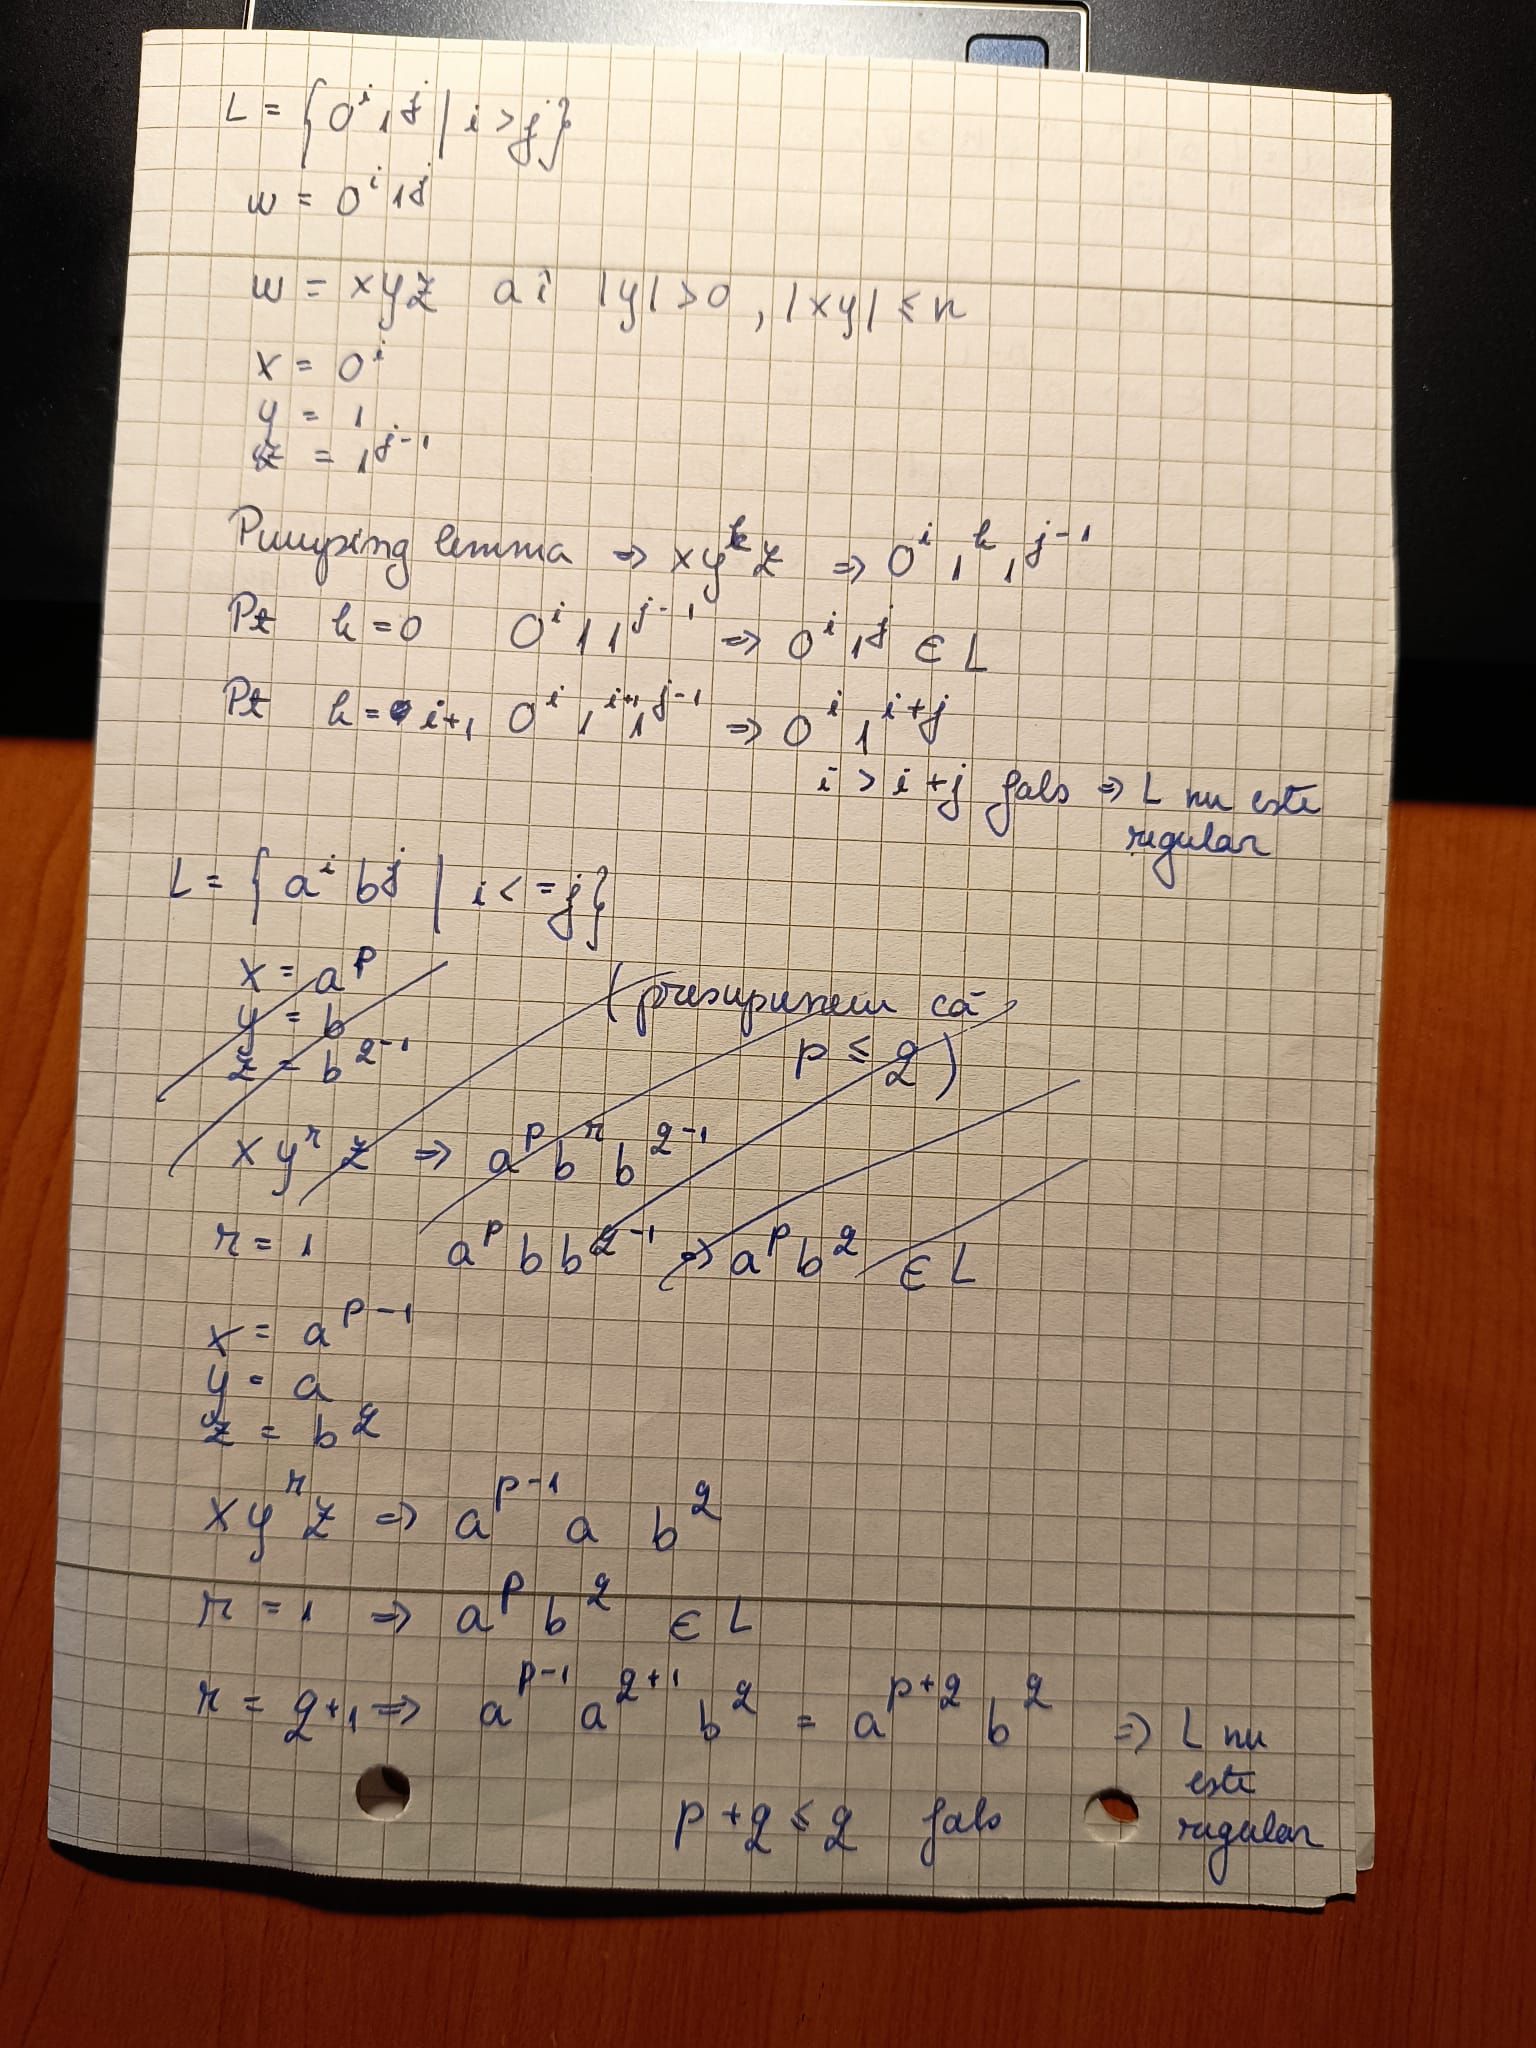 L = {0^i 1^j | i > j}
w = 0^i 1^j
w = xyz aî |y| > 0, |xy| ≤ n
x = 0^i
y = 1
z = 1^{j-1}
Pumping lemma ⇒ xy^k z ⇒ 0^i 1^k 1^{j-1}
Pt k = 0 0^i 1 1^{j-1} ⇒ 0^i 1^j ∈ L
Pt k = i+1 0^i 1^{i+1} 1^{j-1} ⇒ 0^i 1^{i+j}
i > i+j fals ⇒ L nu este
regular
L = {a^i b^j | i <= j}
x = a^p
(presupunem că
y = b
p ≤ q)
z = b^{q-1}
x y^r z ⇒ a^p b^r b^{q-1}
r = 1 a^p b b^{q-1} ⇒ a^p b^q ∈ L
x = a^{p-1}
y = a
z = b^q
x y^r z ⇒ a^{p-1} a b^q
r = 1 ⇒ a^p b^q ∈ L
r = q+1 ⇒ a^{p-1} a^{q+1} b^q = a^{p+q} b^q ⇒ L nu
este
p+q ≤ q fals
regular